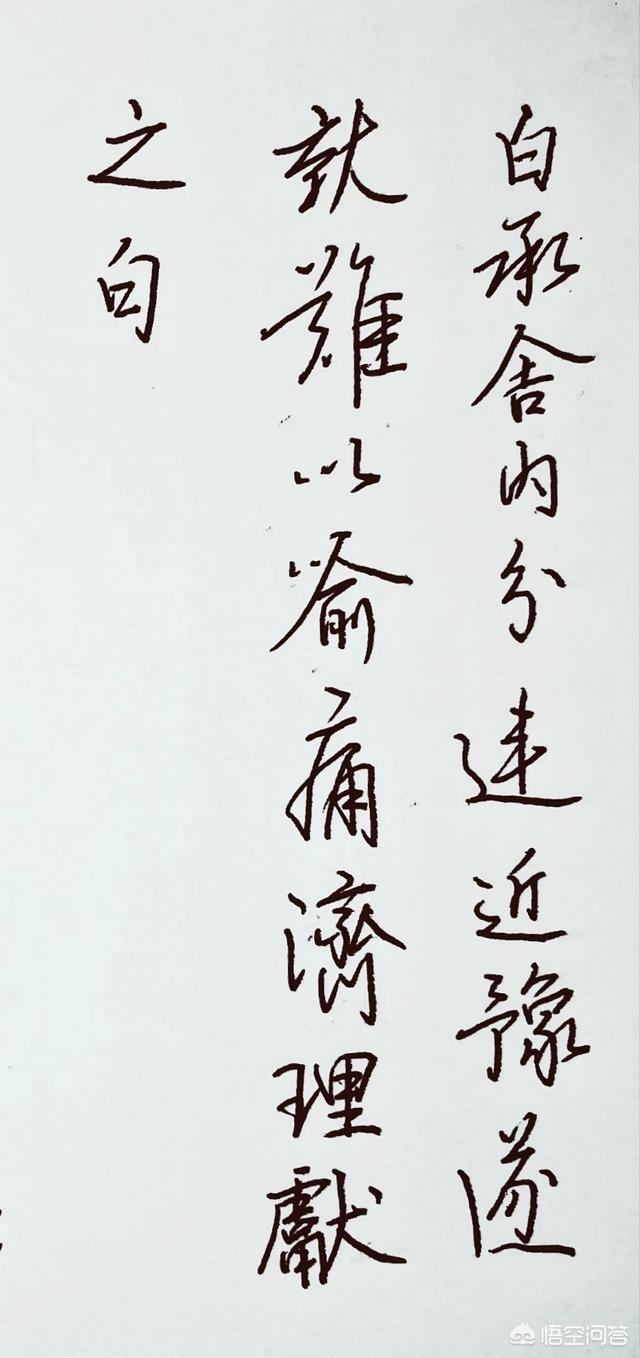 白承舍内分違近豫遂
就難以喻痛濟理獻
之白
悟空问答